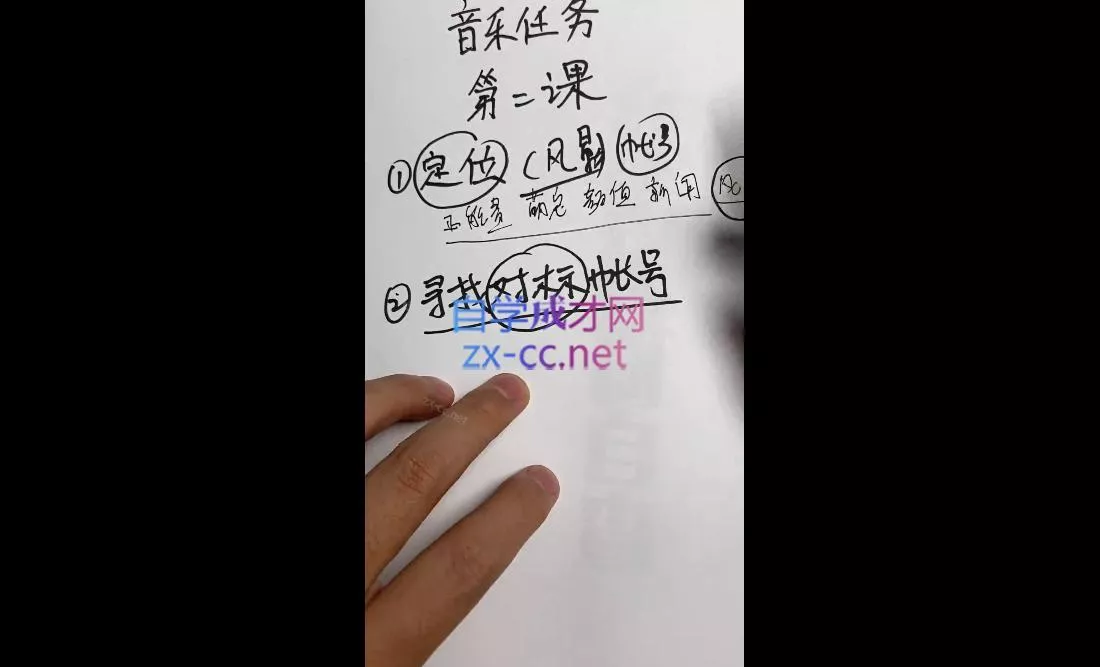 音乐任务
第二课
①定位(风景)帐号
正能量 萌宠 颜值 新闻
②寻找对标帐号
自学成才网
zx-cc.net
zx-cc.net